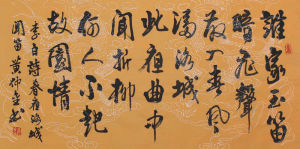 誰家玉笛
暗飛聲
散入春風
滿洛城
此夜曲中
聞折柳
何人不起
故園情
李白詩春夜洛城
聞笛 黄仲金書